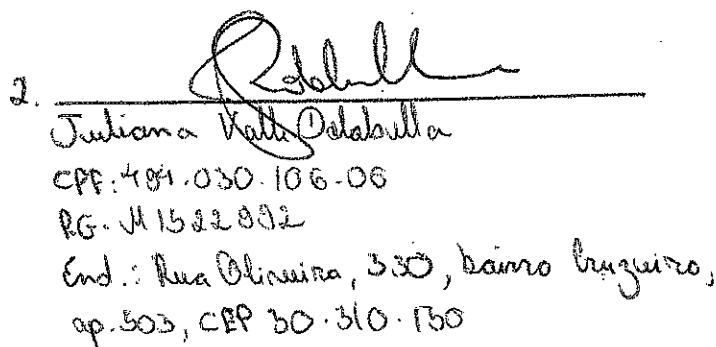 2.
Juliana Valle Odabulla
CPF: 484.030.106-06
RG- M1522992
End.: Rua Oliveira, 330, bairro Cruzeiro,
ap. 503, CEP 30.310.150